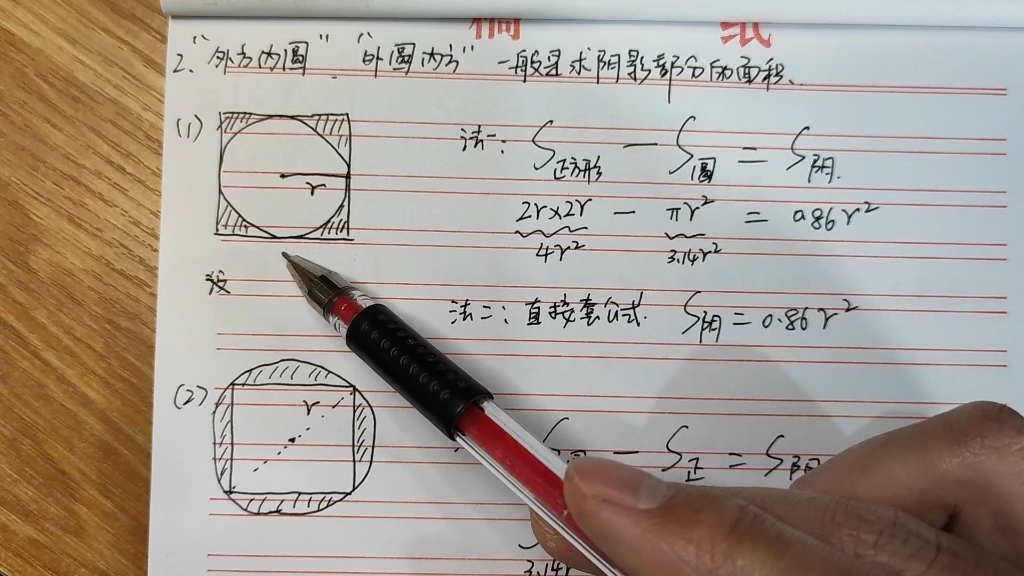 稿 纸
2、"外方内圆" "外圆内方" 一般是求阴影部分的面积、
(1)
r
法一: S正方形 - S圆 = S阴.
2r×2r - πr² = 0.86r²
4r² 3.14r²
法二: 直接套公式. S阴 = 0.86r²
(2)
r
- S正 = S阴
3.14r